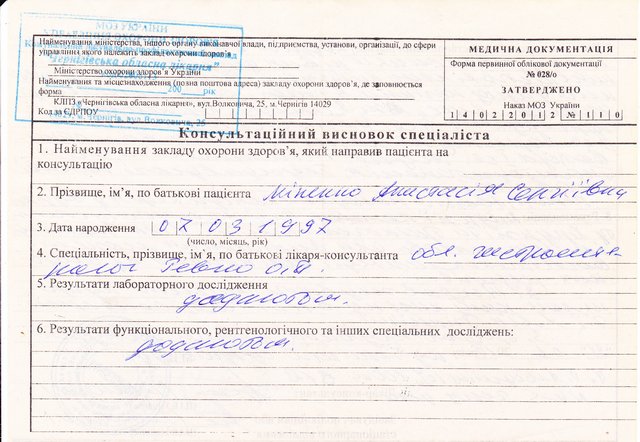 МОЗ УКРАЇНИ
"Чернігівська обласна лікарня"
Найменування міністерства, іншого органу виконавчої влади, підприємства, установи, організації, до сфери
управління якого належить заклад охорони здоров'я
Міністерство охорони здоров'я України
Найменування та місцезнаходження (повна поштова адреса) закладу охорони здоров'я, де заповнюється
форма
200 рік
КЛПЗ «Чернігівська обласна лікарня», вул.Волковича, 25, м.Чернігів 14029
Код за ЄДРПОУ
м. Чернігів, вул.Волковича, 25
МЕДИЧНА ДОКУМЕНТАЦІЯ
Форма первинної облікової документації
№ 028/о
ЗАТВЕРДЖЕНО
Наказ МОЗ України
1 4 0 2 2 0 1 2 № 1 1 0
Консультаційний висновок спеціаліста
1. Найменування закладу охорони здоров'я, який направив пацієнта на
консультацію
2. Прізвище, ім'я, по батькові пацієнта Міненко Анастасія Сергіївна
3. Дата народження 0 7 0 3 1 9 9 7
(число, місяць, рік)
4. Спеціальність, прізвище, ім'я, по батькові лікаря-консультанта обл. гастроенте-
ролог
5. Результати лабораторного дослідження
додаються.
6. Результати функціонального, рентгенологічного та інших спеціальних досліджень:
додаються.